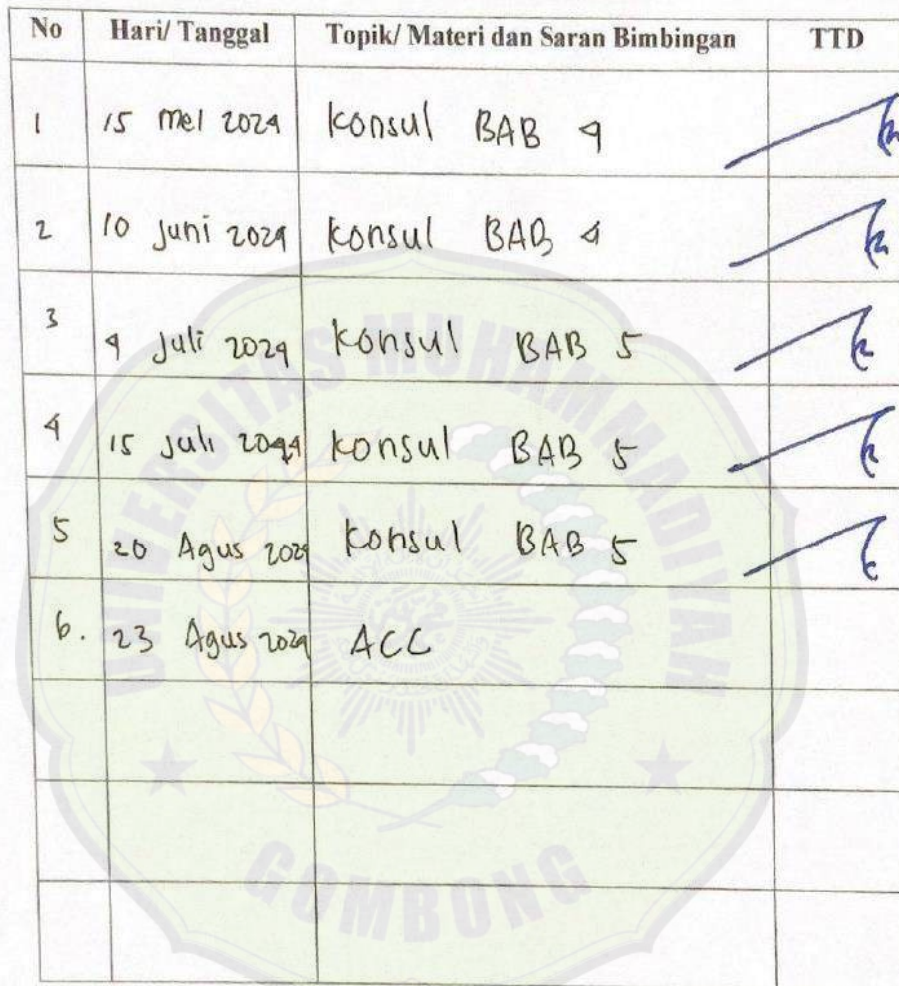 No Hari/ Tanggal Topik/ Materi dan Saran Bimbingan TTD
1 15 Mei 2024 Konsul BAB 4
2 10 Juni 2024 Konsul BAB 4
3 4 Juli 2024 Konsul BAB 5
4 15 Juli 2024 Konsul BAB 5
5 20 Agus 2024 Konsul BAB 5
6. 23 Agus 2024 ACC
UNIVERSITAS MUHAMMADIYAH
GOMBONG